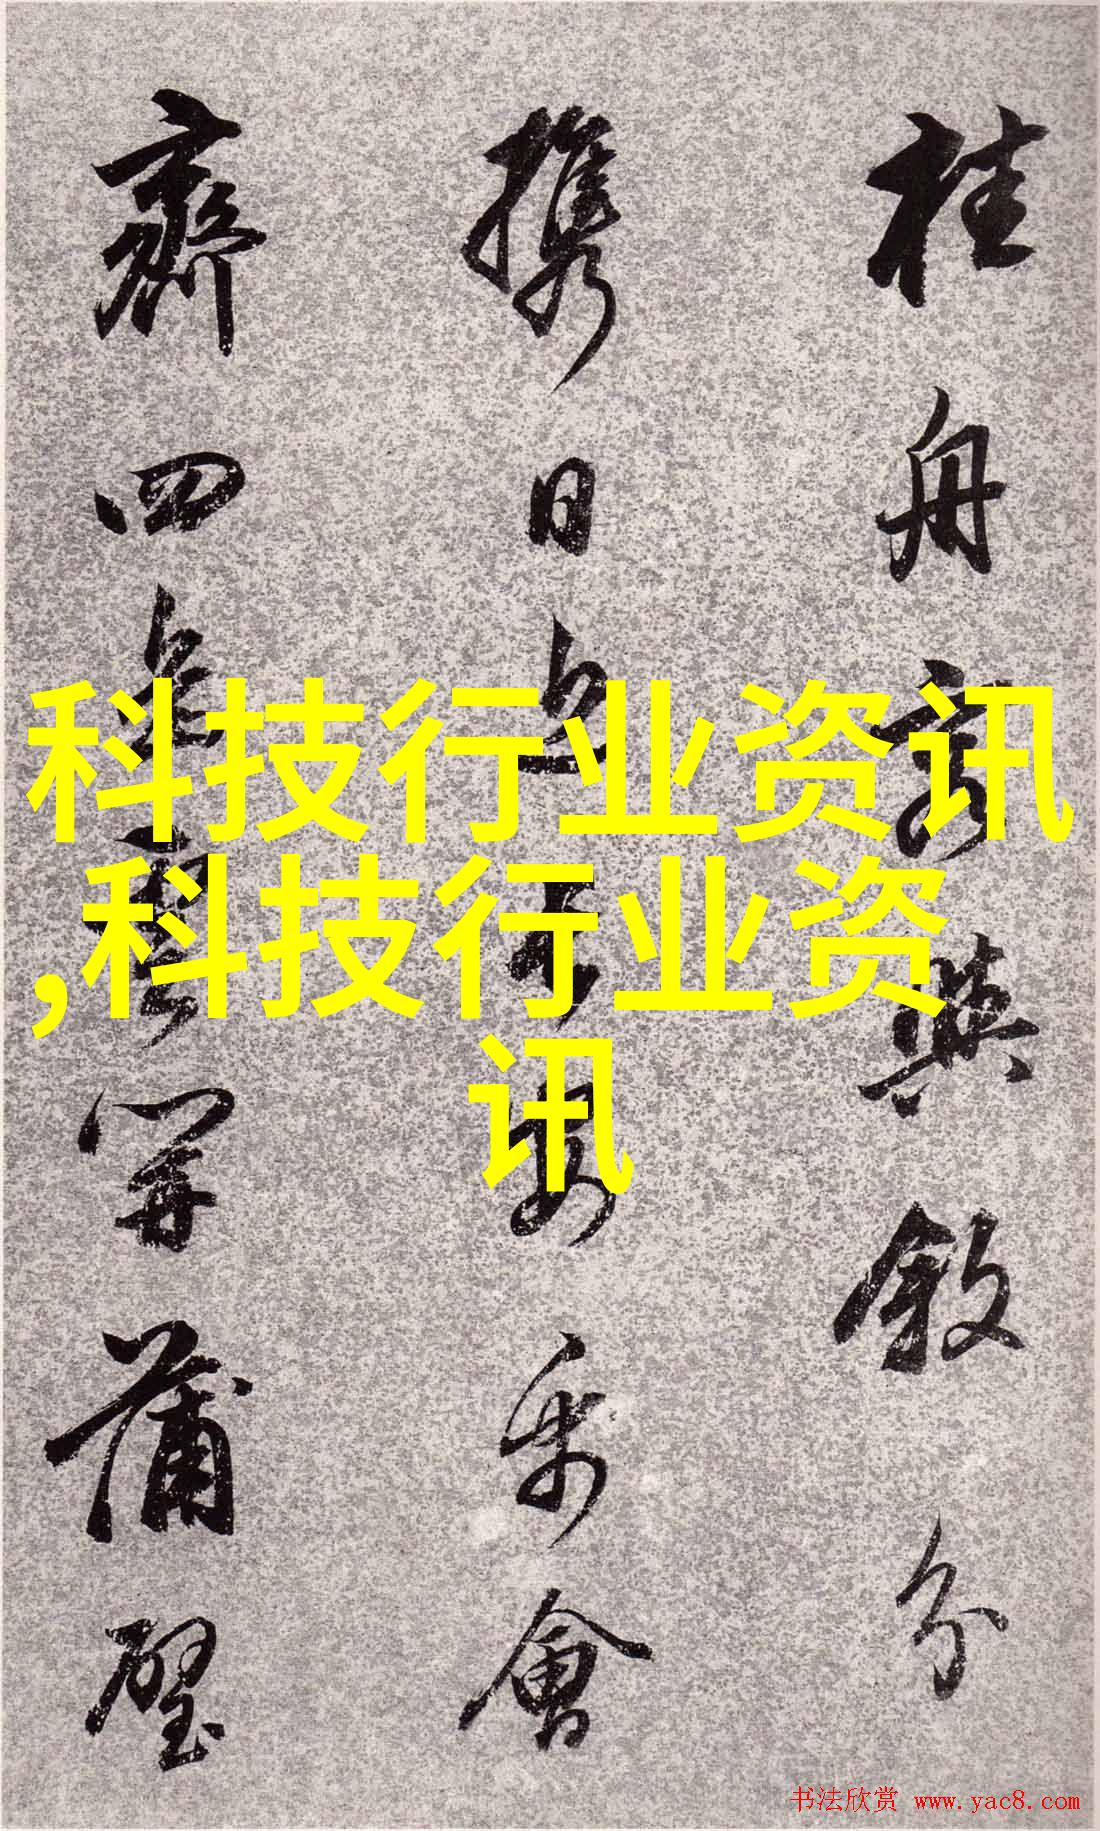 桂舟容與敘分
攜日會
齊四開蒲璧
科技行业资讯
,科技行业资
讯
书法欣赏 www.yac8.com